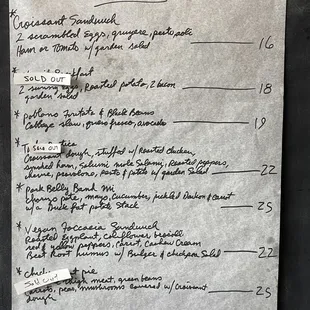 * Croissant Sandwich
2 scrambled Eggs, gruyere, pesto aiole
Ham or Tomato w/garden salad 16
* SOLD OUT Breakfast
2 sunny eggs, Roasted potato, 2 bacon 18
garden salad
* poblano Frittata & Black Beans
Cabbage slaw, queso fresco, avocado 19
* SOLD OUT
Croissant dough, stuffed w/ Roasted Chicken,
smoked ham, Salumi mole Salami, Roasted peppers,
provolone, pesto & garden Salad 22
* Pork Belly Banh mi
mayo, Cucumber, pickled Daikon & Carrot
w/a Duck fat potato Stack 25
* Vegan Foccacia Sandwich
Roasted Eggplant, cauliflower
red & yellow peppers, carrot, Cashew Cream
Beet Root hummus w/ Bulger & chickpea Salad 22
* SOLD OUT pie
thigh meat, green beans
carrots, peas, mushrooms covered w/ Croissant 25
dough